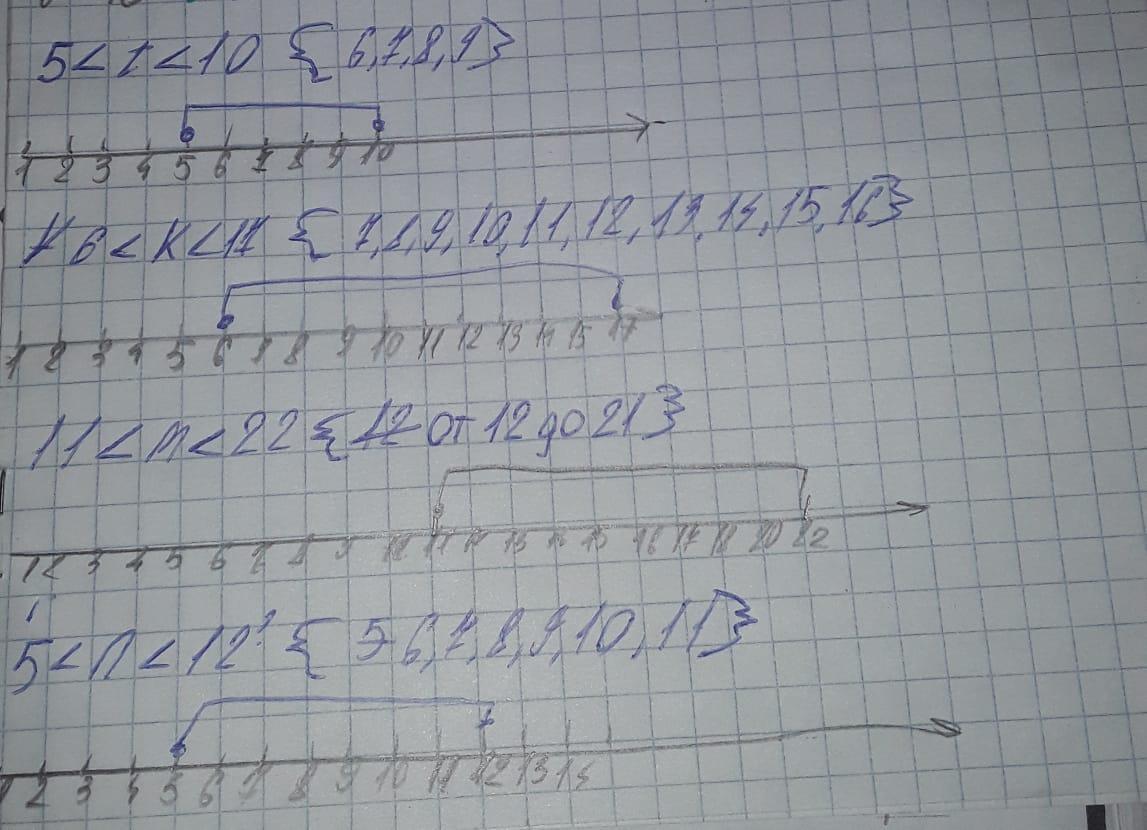 5 < t < 10 { 6,7,8,9}
1 2 3 4 5 6 7 8 9 10
6 < K < 17 { 7,8,9,10,11,12,13,14,15,16}
1 2 3 4 5 6 7 8 9 10 11 12 13 14 15 17
11 < m < 22 {12 от 12 до 21}
12 3 4 5 6 7 8 9 10 11 12 13 14 15 16 17 18 20 22
5 < n < 12 { 5 6,7,8,9,10,11}
1 2 3 4 5 6 7 8 9 10 11 12 13 14